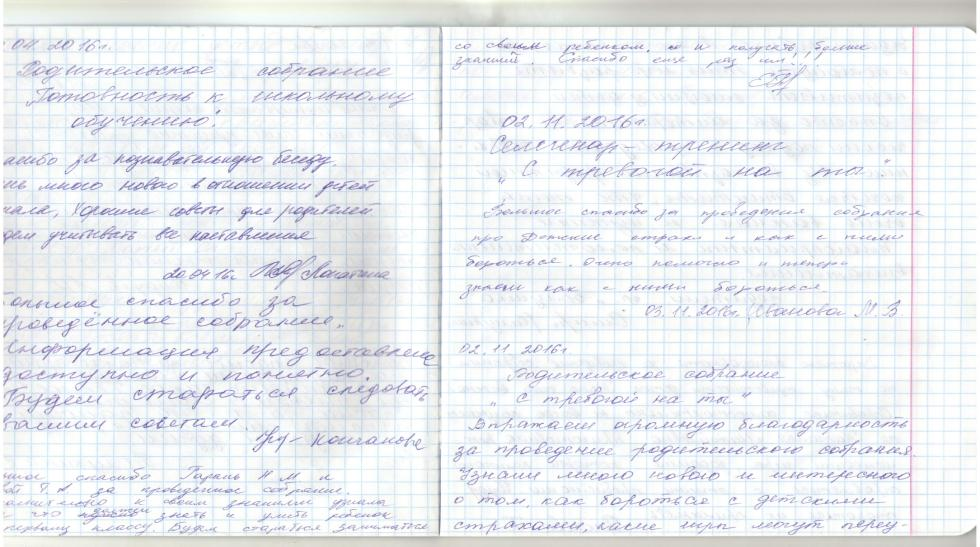 04 2016г.
Родительское собрание
"Готовность к школьному
обучению".
за познавательную беседу.
много нового в отношении детей
Хорошие советы для родителей
учитывать все наставления
20.04.16г. Лопатина
большое спасибо за
проведённое собрание.
Информация предоставлена
доступно и понятно.
Будем стараться следовать
вашим советам.
Колчанова
спасибо Н М и
Т.А за проведённое собрание.
и своим знаниям узнала
что должен знать и уметь ребёнок
первому классу. Будем стараться заниматься
со своим ребенком, но и получать больше
знаний. Спасибо еще раз им!
02.11.2016г.
Семенар-тренинг
"С тревогой на ты".
Большое спасибо за проведения собрания
про Детские страхи и как с ними
бороться. Очень помогло и теперь
знаем как с ними бороться.
03.11.2016г. Иванова М.В
02.11 2016г
Родительское собрание
"С тревогой на ты"
Выражаем огромную благодарность
за проведение родительского собрания.
Узнали много нового и интересного
о том, как бороться с детскими
страхами, какие игры могут переу-